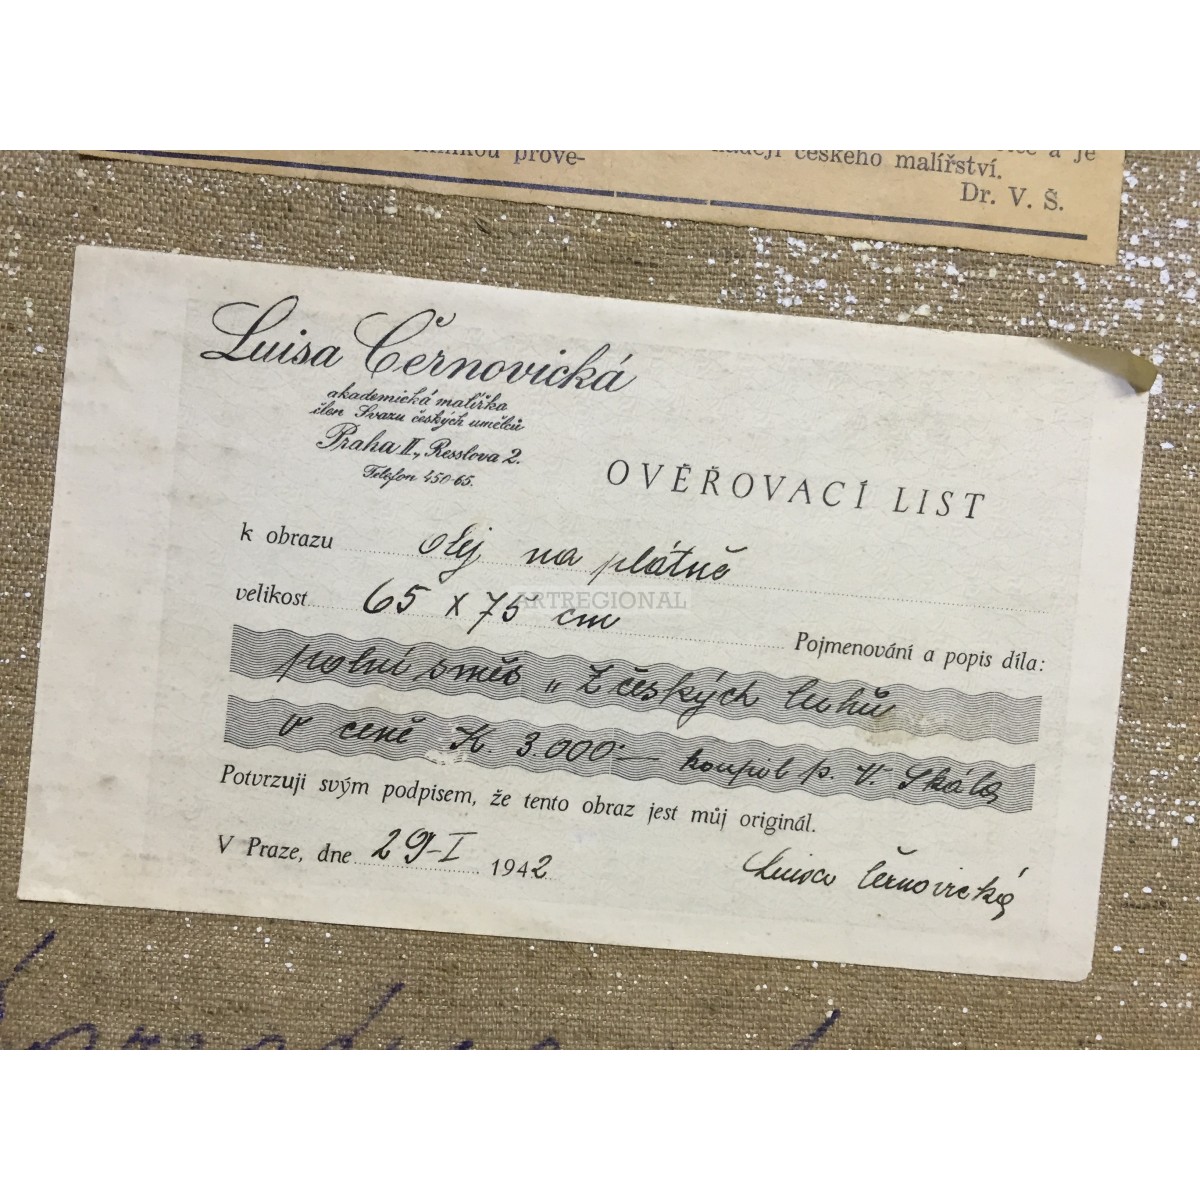 prove-
českého malířství.
a je
Dr. V. Š.
Luisa Černovická
akademická malířka
člen Svazu českých umělců
Praha II., Resslova 2.
Telefon 450-65.
OVĚŘOVACÍ LIST
k obrazu olej na plátně
velikost 65 x 75 cm
ARTREGIONAL
Pojmenování a popis díla:
polní směs „Z českých luhů
v ceně K. 3.000·— koupil p. V. Skála
Potvrzuji svým podpisem, že tento obraz jest můj originál.
V Praze, dne 29-I 1942
Luisa Černovická